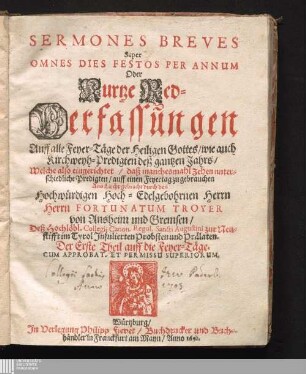 SERMONES BREVES
Super
OMNES DIES FESTOS PER ANNUM
Oder
Kurtze Red-
Verfassungen
Auff alle Feyer-Täge der Heiligen Gottes / wie auch
Kirchweyh-Predigten deß gantzen Jahrs /
Welche also eingerichtet / daß manchesmahl Zehen unter-
schiedliche Predigten / auff einen Feyertag zu gebrauchen
durch den
Hochwürdigen Hoch-Edelgebohrnen Herrn
Herrn FORTUNATUM TROYER
von Aufheim und Grensen /
Deß Hochlöbl. Collegii Canon. Regul. Sancti Augustini zur Neu-
stifft im Tyrol Infulierten Probsten und Prälaten.
Der Erste Theil auff die Feyer-Täge.
CUM APPROBAT. ET PERMISSU SUPERIORUM.
Würtzburg /
In Verlegung Philipp Fievet / Buchdrucker und Buch-
händler in Franckfurt am Mayn / Anno